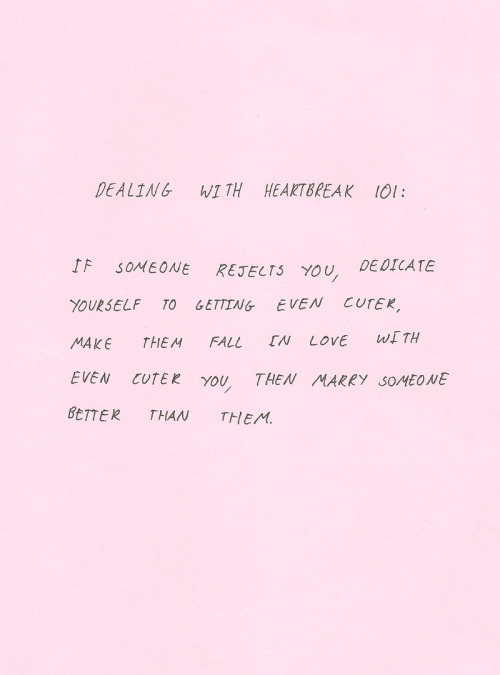 DEALING WITH HEARTBREAK 101:
IF SOMEONE REJECTS YOU, DEDICATE
YOURSELF TO GETTING EVEN CUTER,
MAKE THEM FALL IN LOVE WITH
EVEN CUTER YOU, THEN MARRY SOMEONE
BETTER THAN THEM.